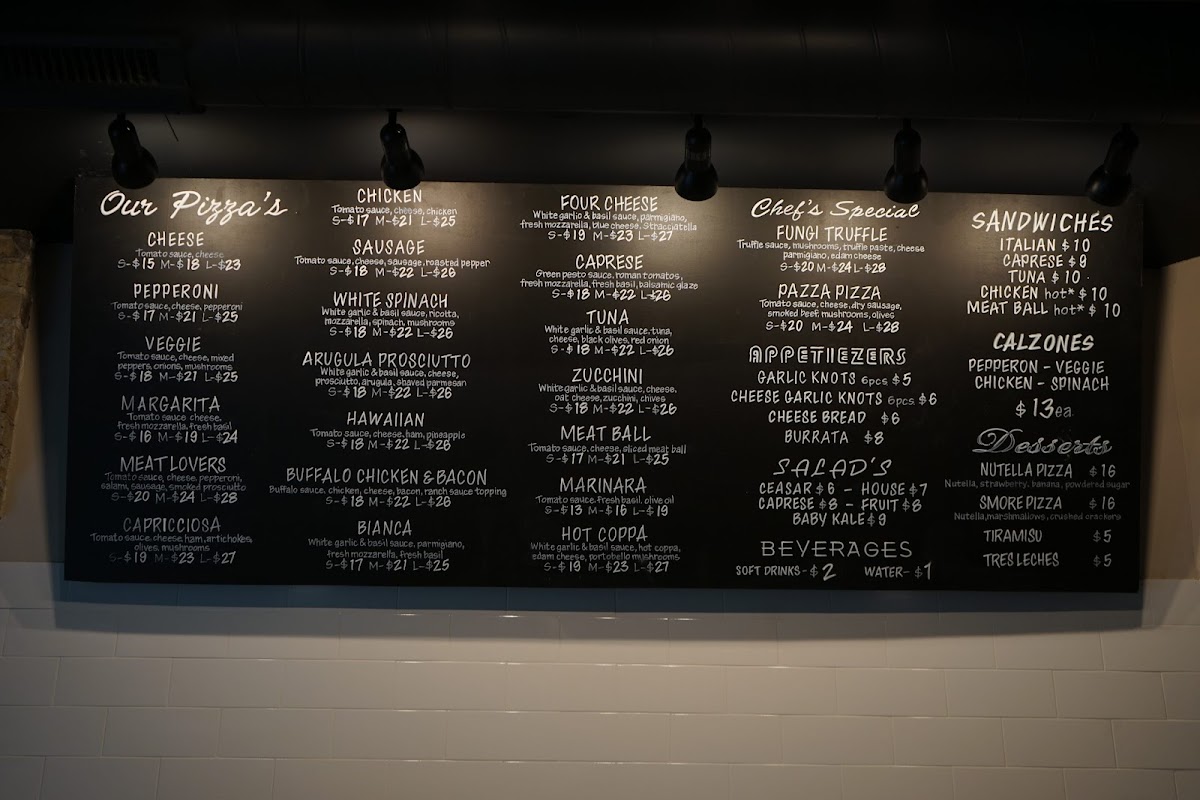 Our Pizza's
CHEESE
Tomato sauce, cheese
S-$15 M-$18 L-$23
PEPPERONI
Tomato sauce, cheese, pepperoni
S-$17 M-$21 L-$25
VEGGIE
Tomato sauce, cheese, mixed
peppers, onions, mushrooms
S-$18 M-$21 L-$25
MARGARITA
Tomato sauce cheese,
fresh mozzarella, fresh basil
S-$16 M-$19 L-$24
MEAT LOVERS
Tomato sauce, cheese, pepperoni,
salami, sausage, smoked prosciutto
S-$20 M-$24 L-$28
CAPRICCIOSA
Tomato sauce, cheese, ham, artichokes,
olives, mushrooms
S-$19 M-$23 L-$27
CHICKEN
Tomato sauce, cheese, chicken
S-$17 M-$21 L-$25
SAUSAGE
Tomato sauce, cheese, sausage, roasted pepper
S-$18 M-$22 L-$26
WHITE SPINACH
White garlic & basil sauce, ricotta,
mozzarella, spinach, mushrooms
S-$18 M-$22 L-$26
ARUGULA PROSCIUTTO
White garlic & basil sauce, cheese,
prosciutto, arugula, shaved parmesan
S-$18 M-$22 L-$26
HAWAIIAN
Tomato sauce, cheese, ham, pineapple
S-$18 M-$22 L-$26
BUFFALO CHICKEN & BACON
Buffalo sauce, chicken, cheese, bacon, ranch sauce topping
S-$18 M-$22 L-$26
BIANCA
White garlic & basil sauce, parmigiano,
fresh mozzarella, fresh basil
S-$17 M-$21 L-$25
FOUR CHEESE
White garlic & basil sauce, parmigiano,
fresh mozzarella, blue cheese, Stracciatella
S-$19 M-$23 L-$27
CAPRESE
Green pesto sauce, roman tomatos,
fresh mozzarella, fresh basil, balsamic glaze
S-$18 M-$22 L-$26
TUNA
White garlic & basil sauce, tuna,
cheese, black olives, red onion
S-$18 M-$22 L-$26
ZUCCHINI
White garlic & basil sauce, cheese,
oat cheese, zucchini, chives
S-$18 M-$22 L-$26
MEAT BALL
Tomato sauce, cheese, sliced meat ball
S-$17 M-$21 L-$25
MARINARA
Tomato sauce, fresh basil, olive oil
S-$13 M-$16 L-$19
HOT COPPA
White garlic & basil sauce, hot coppa,
edam cheese, portobello mushrooms
S-$19 M-$23 L-$27
Chef's Special
FUNGI TRUFFLE
Truffle sauce, mushrooms, truffle paste, cheese
parmigiano, edam cheese
S-$20 M-$24 L-$28
PAZZA PIZZA
Tomato sauce, cheese, dry sausage,
smoked beef, mushrooms, olives
S-$20 M-$24 L-$28
APPETIEZERS
GARLIC KNOTS 6pcs $5
CHEESE GARLIC KNOTS 6pcs $6
CHEESE BREAD $6
BURRATA $8
SALAD'S
CEASAR $6 - HOUSE $7
CAPRESE $8 - FRUIT $8
BABY KALE $9
BEVERAGES
SOFT DRINKS - $2 WATER - $1
SANDWICHES
ITALIAN $10
CAPRESE $9
TUNA $10
CHICKEN hot* $10
MEAT BALL hot* $10
CALZONES
PEPPERON - VEGGIE
CHICKEN - SPINACH
$13ea.
Desserts
NUTELLA PIZZA $16
Nutella, strawberry, banana, powdered sugar
SMORE PIZZA $16
Nutella, marshmallows, crushed crackers
TIRAMISU $5
TRES LECHES $5